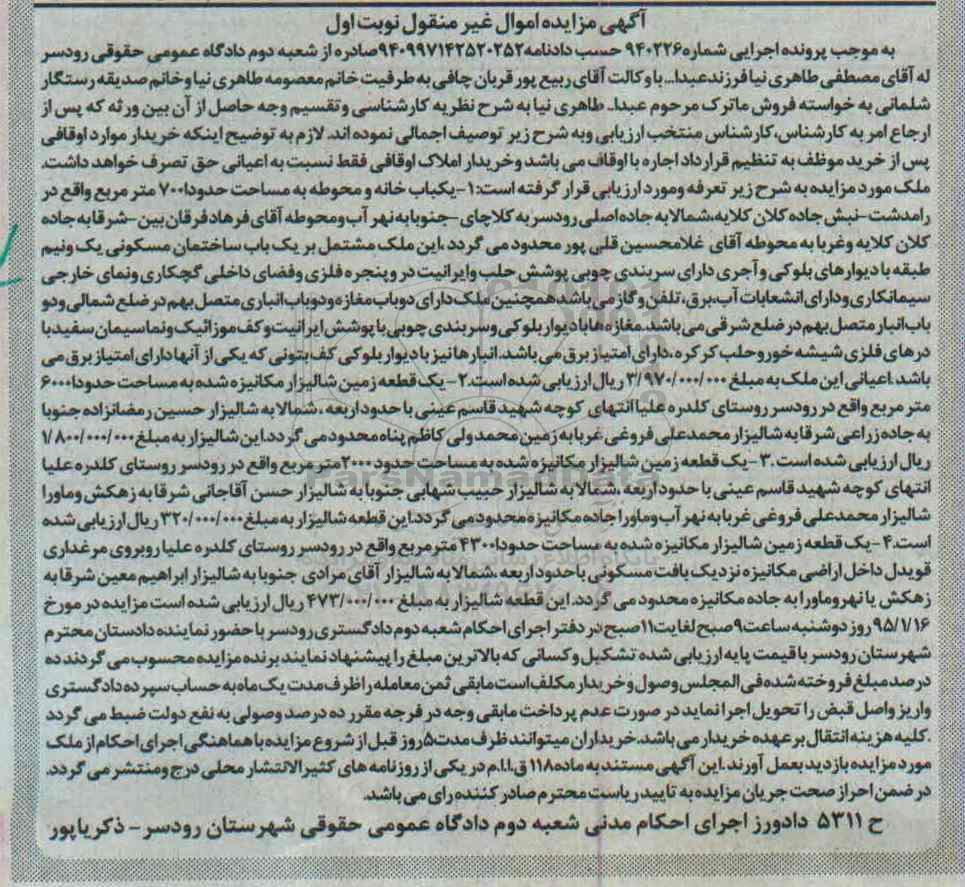 آگهی مزایده اموال غیر منقول نوبت اول
به موجب پرونده اجرایی شماره ۹۴۰۲۲۶ حسب دادنامه ۹۴۰۹۹۷۱۴۲۵۲۰۲۵۲ صادره از شعبه دوم دادگاه عمومی حقوقی رودسر
له آقای مصطفی طاهری نیا فرزند عبدا... با وکالت آقای ربیع پور قربان چافی به طرفیت خانم معصومه طاهری نیا و خانم صدیقه رستگار
شلمانی به خواسته فروش ماترک مرحوم عبدا... طاهری نیا به شرح نظریه کارشناسی و تقسیم وجه حاصل از آن بین ورثه که پس از
ارجاع امر به کارشناس، کارشناس منتخب ارزیابی و به شرح زیر توصیف اجمالی نموده اند. لازم به توضیح اینکه خریدار موارد اوقافی
پس از خرید موظف به تنظیم قرارداد اجاره با اوقاف می باشد و خریدار املاک اوقافی فقط نسبت به اعیانی حق تصرف خواهد داشت.
ملک مورد مزایده به شرح زیر تعرفه و مورد ارزیابی قرار گرفته است: ۱- یکباب خانه و محوطه به مساحت حدودا ۷۰۰ متر مربع واقع در
رامدشت - نبش جاده کلان کلایه، شمالا به جاده اصلی رودسر به کلاچای - جنوبا به نهر آب و محوطه آقای فرهاد فرقان بین - شرقا به جاده
کلان کلایه و غربا به محوطه آقای غلامحسین قلی پور محدود می گردد. این ملک مشتمل بر یک باب ساختمان مسکونی یک و نیم
طبقه با دیوارهای بلوکی و آجری دارای سربندی چوبی پوشش حلب و ایرانیت در و پنجره فلزی و فضای داخلی گچکاری و نمای خارجی
سیمانکاری و دارای انشعابات آب، برق، تلفن و گاز می باشد همچنین ملک دارای دو باب مغازه و دو باب انباری متصل بهم در ضلع شمالی و دو
باب انبار متصل بهم در ضلع شرقی می باشد. مغازه ها با دیوار بلوکی و سربندی چوبی با پوشش ایرانیت و کف موزائیک و نما سیمان سفید با
درهای فلزی شیشه خور و حلب کرکره، دارای امتیاز برق می باشد. انبارها نیز با دیوار بلوکی کف بتونی که یکی از آنها دارای امتیاز برق می
باشد. اعیانی این ملک به مبلغ ۳/۹۷۰/۰۰۰/۰۰۰ ریال ارزیابی شده است. ۲- یک قطعه زمین شالیزار مکانیزه شده به مساحت حدودا ۶۰۰۰
متر مربع واقع در رودسر روستای کلدره علیا انتهای کوچه شهید قاسم عینی با حدود اربعه، شمالا به شالیزار حسین رمضانزاده جنوبا
به جاده زراعی شرقا به شالیزار محمدعلی فروغی غربا به زمین محمد ولی کاظم پناه محدود می گردد. این شالیزار به مبلغ ۱/۸۰۰/۰۰۰/۰۰۰
ریال ارزیابی شده است. ۳- یک قطعه زمین شالیزار مکانیزه شده به مساحت حدود ۲۰۰۰ متر مربع واقع در رودسر روستای کلدره علیا
انتهای کوچه شهید قاسم عینی با حدود اربعه، شمالا به شالیزار حبیب شهابی جنوبا به شالیزار حسن آقاجانی شرقا به زهکش و ماورا
شالیزار محمدعلی فروغی غربا به نهر آب و ماورا جاده مکانیزه محدود می گردد. این قطعه شالیزار به مبلغ ۳۲۰/۰۰۰/۰۰۰ ریال ارزیابی شده
است. ۴- یک قطعه زمین شالیزار مکانیزه شده به مساحت حدودا ۴۳۰۰ متر مربع واقع در رودسر روستای کلدره علیا روبروی مرغداری
قویدل داخل اراضی مکانیزه نزدیک بافت مسکونی با حدود اربعه، شمالا به شالیزار آقای مرادی جنوبا به شالیزار ابراهیم معین شرقا به
زهکش یا نهر و ماورا به جاده مکانیزه محدود می گردد. این قطعه شالیزار به مبلغ ۴۷۳/۰۰۰/۰۰۰ ریال ارزیابی شده است مزایده در مورخ
۹۵/۱/۱۶ روز دوشنبه ساعت ۹ صبح لغایت ۱۱ صبح در دفتر اجرای احکام شعبه دوم دادگستری رودسر با حضور نماینده دادستان محترم
شهرستان رودسر با قیمت پایه ارزیابی شده تشکیل و کسانی که بالاترین مبلغ را پیشنهاد نمایند برنده مزایده محسوب می گردند ده
درصد مبلغ فروخته شده فی المجلس وصول و خریدار مکلف است مابقی ثمن معامله را ظرف مدت یک ماه به حساب سپرده دادگستری
واریز واصل قبض را تحویل اجرا نماید در صورت عدم پرداخت مابقی وجه در فرجه مقرر ده درصد وصولی به نفع دولت ضبط می گردد
.کلیه هزینه انتقال بر عهده خریدار می باشد. خریداران میتوانند ظرف مدت ۵ روز قبل از شروع مزایده با هماهنگی اجرای احکام از ملک
مورد مزایده بازدید بعمل آورند. این آگهی مستند به ماده ۱۱۸ ق.ا.ا.م در یکی از روزنامه های کثیرالانتشار محلی درج و منتشر می گردد.
در ضمن احراز صحت جریان مزایده به تایید ریاست محترم صادر کننده رای می باشد.
ح ۵۳۱۱ دادورز اجرای احکام مدنی شعبه دوم دادگاه عمومی حقوقی شهرستان رودسر - ذکریاپور